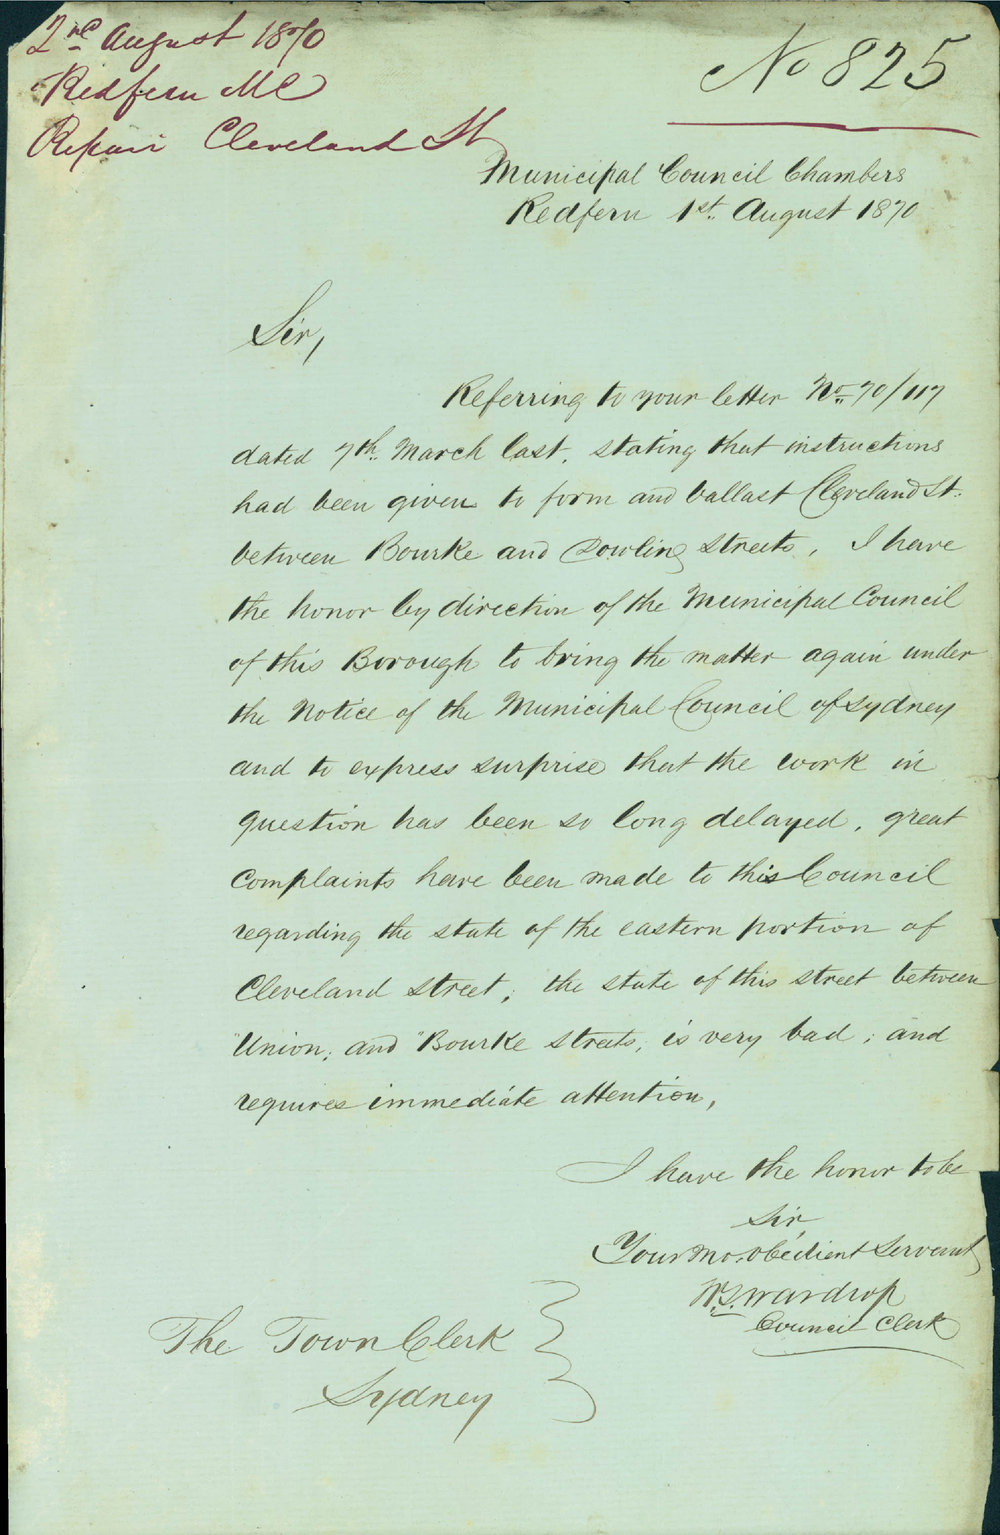 2nd August 1870
Redfern MC
Repair Cleveland St
No 825
Municipal Council Chambers
Redfern 1st. August 1870
Sir,
Referring to your letter No 70/117
dated 7th. March last, stating that instructions
had been given to form and ballast Cleveland St.
between Bourke and Dowling streets, I have
the honor by direction of the Municipal Council
of this Borough to bring the matter again under
the Notice of the Municipal Council of Sydney
and to express surprise that the work in
question has been so long delayed, great
complaints have been made to this Council
regarding the state of the eastern portion of
Cleveland street; the state of this street between
"Union; and "Bourke streets; is very bad; and
requires immediate attention,
I have the honor to be
Sir,
Your Mo. obedient Servant
Wardrop
Council Clerk
The Town Clerk
Sydney